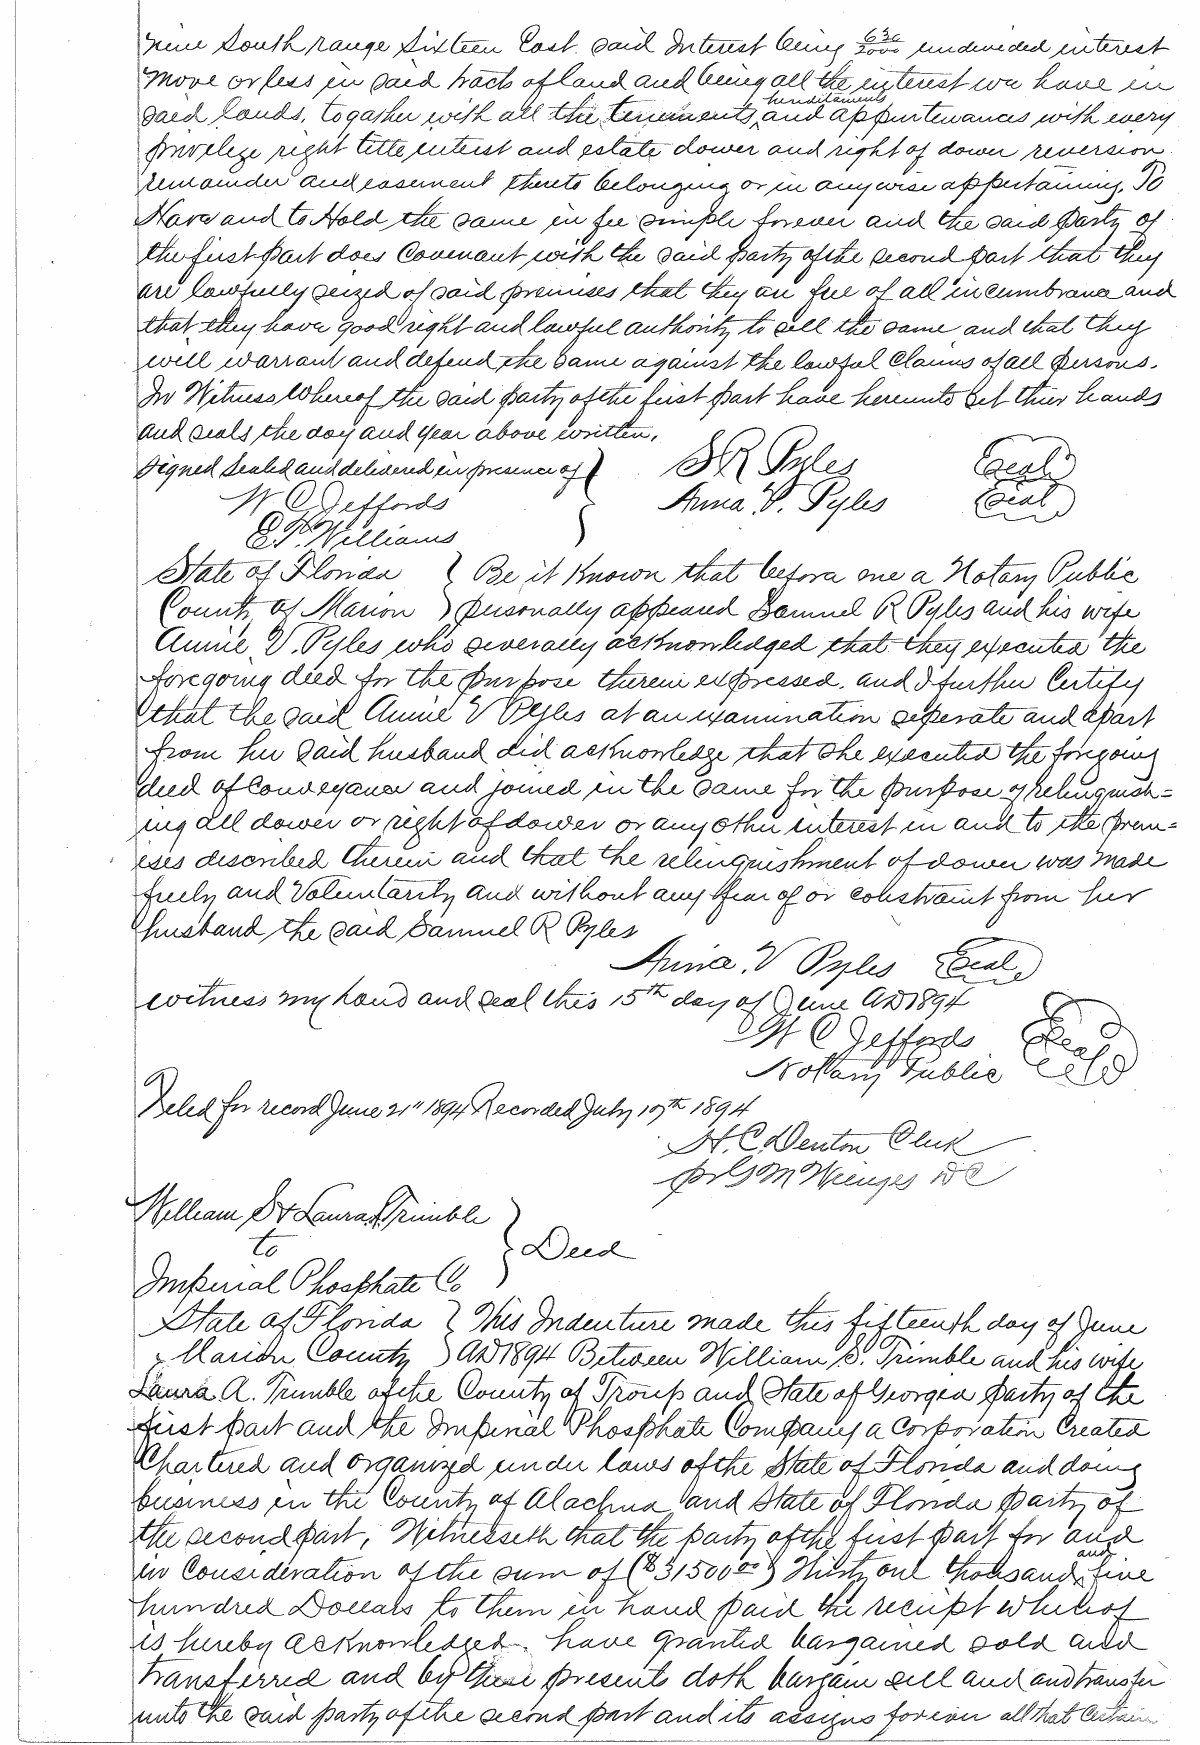 nine South range Sixteen East. said Interest being 630/2000 undivided interest
more or less in said tract of land and being all the interest we have in
said lands, togather with all the tenements, heriditaments and appurtenances with every
privelege right title interst and estate dower and right of dower reversion
remainder and easement thereto belonging or in any wise appertaining, To
Have and to Hold the same in fee simple forever and the said party of
the first part does Covenant with the said party of the second part that they
are lawfully seized of said premises that they are free of all incumbrance and
that they have good right and lawful authority to sell the same and that they
will warrant and defend the same against the lawful Claims of all persons.
In Witness Whereof the said party of the first part have hereunto set thier hands
and seals the day and year above written.
Signed Sealed and delivered in presence of } S R Pyles (Seal)
W C Jeffords Anna V. Pyles (Seal)
E. P. Williams
State of Florida } Be it Known that before me a Notary Public
County of Marion } personally appeared Samuel R Pyles and his wife
Annie V. Pyles who severally acknowledged that they executed the
foregoing deed for the purpose therein expressed. and I further Certify
that the said Annie V Pyles at an examination seperate and apart
from her said husband did acknowledge that she executed the foregoing
deed of Conveyance and joined in the same for the purpose of relinquish=
ing all dower or right of dower or any other interest in and to the prem=
ises described therein and that the relinquishment of dower was made
freely and Voluntarily and without any fear of or constraint from her
husband the said Samuel R Pyles
Annie. V Pyles (Seal)
witness my hand and seal this 15th day of June AD 1894
W C Jeffords (Seal)
Notary Public
Filed for record June 21st 1894 Recorded July 17th 1894
H. C. Denton Clerk
pr G M Wienges DC
William S & Laura A Trimble
to } Deed
Imperial Phosphate Co
State of Florida } This Indenture made this fifteenth day of June
Marion County } AD 1894 Between William S. Trimble and his wife
Laura A. Trimble of the County of Troup and State of Georgea party of the
first part and the Imperial Phosphate Company a Corporation Created
Chartered and organized under laws of the State of Florida and doing
business in the County of Alachua and State of Florida party of
the second part, Witnesseth that the party of the first part for and
in Consideration of the sum of ($31500 00) Thirty one thousand and five
hundred Dollars to them in hand paid the receipt whereof
is hereby acknowledged. have granted bargained sold and
transferred and by these presents doth bargain sell and and transfer
unto the said party of the second part and its assigns forever all that Certain